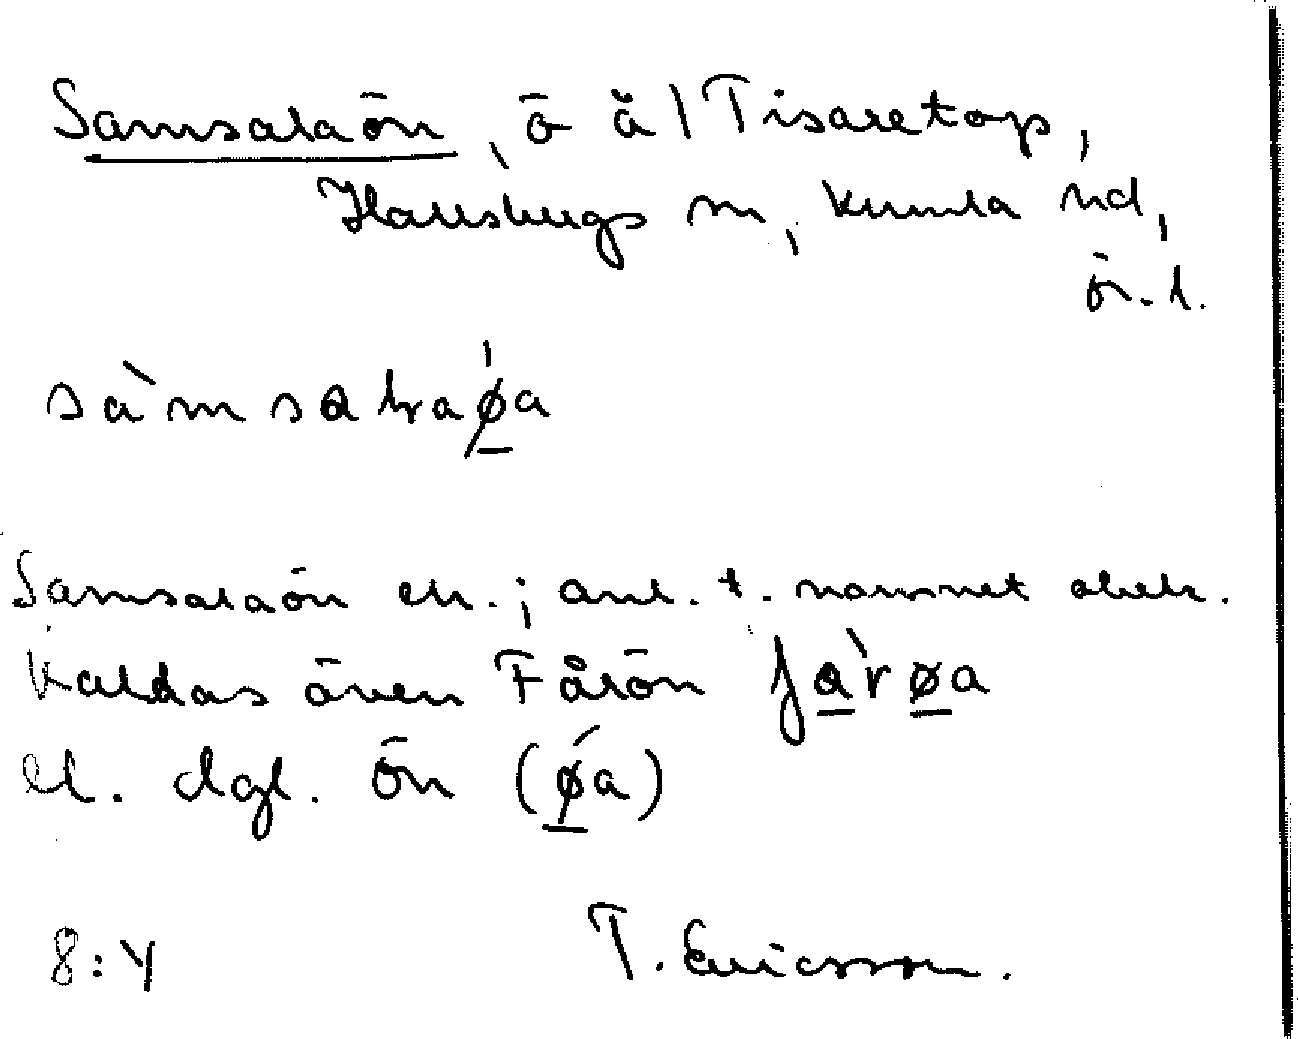 Samsalaön, ö å / Tisaretop,
Hallsbergs sn, Kumla hd,
ör. l.
sàmsalraǿa
Samsalaön eln.; anl. t. namnet obek.
Kallas även Fårön fàrøa
el. dgl. ön (ǿa)
8:4 T. Ericsson.